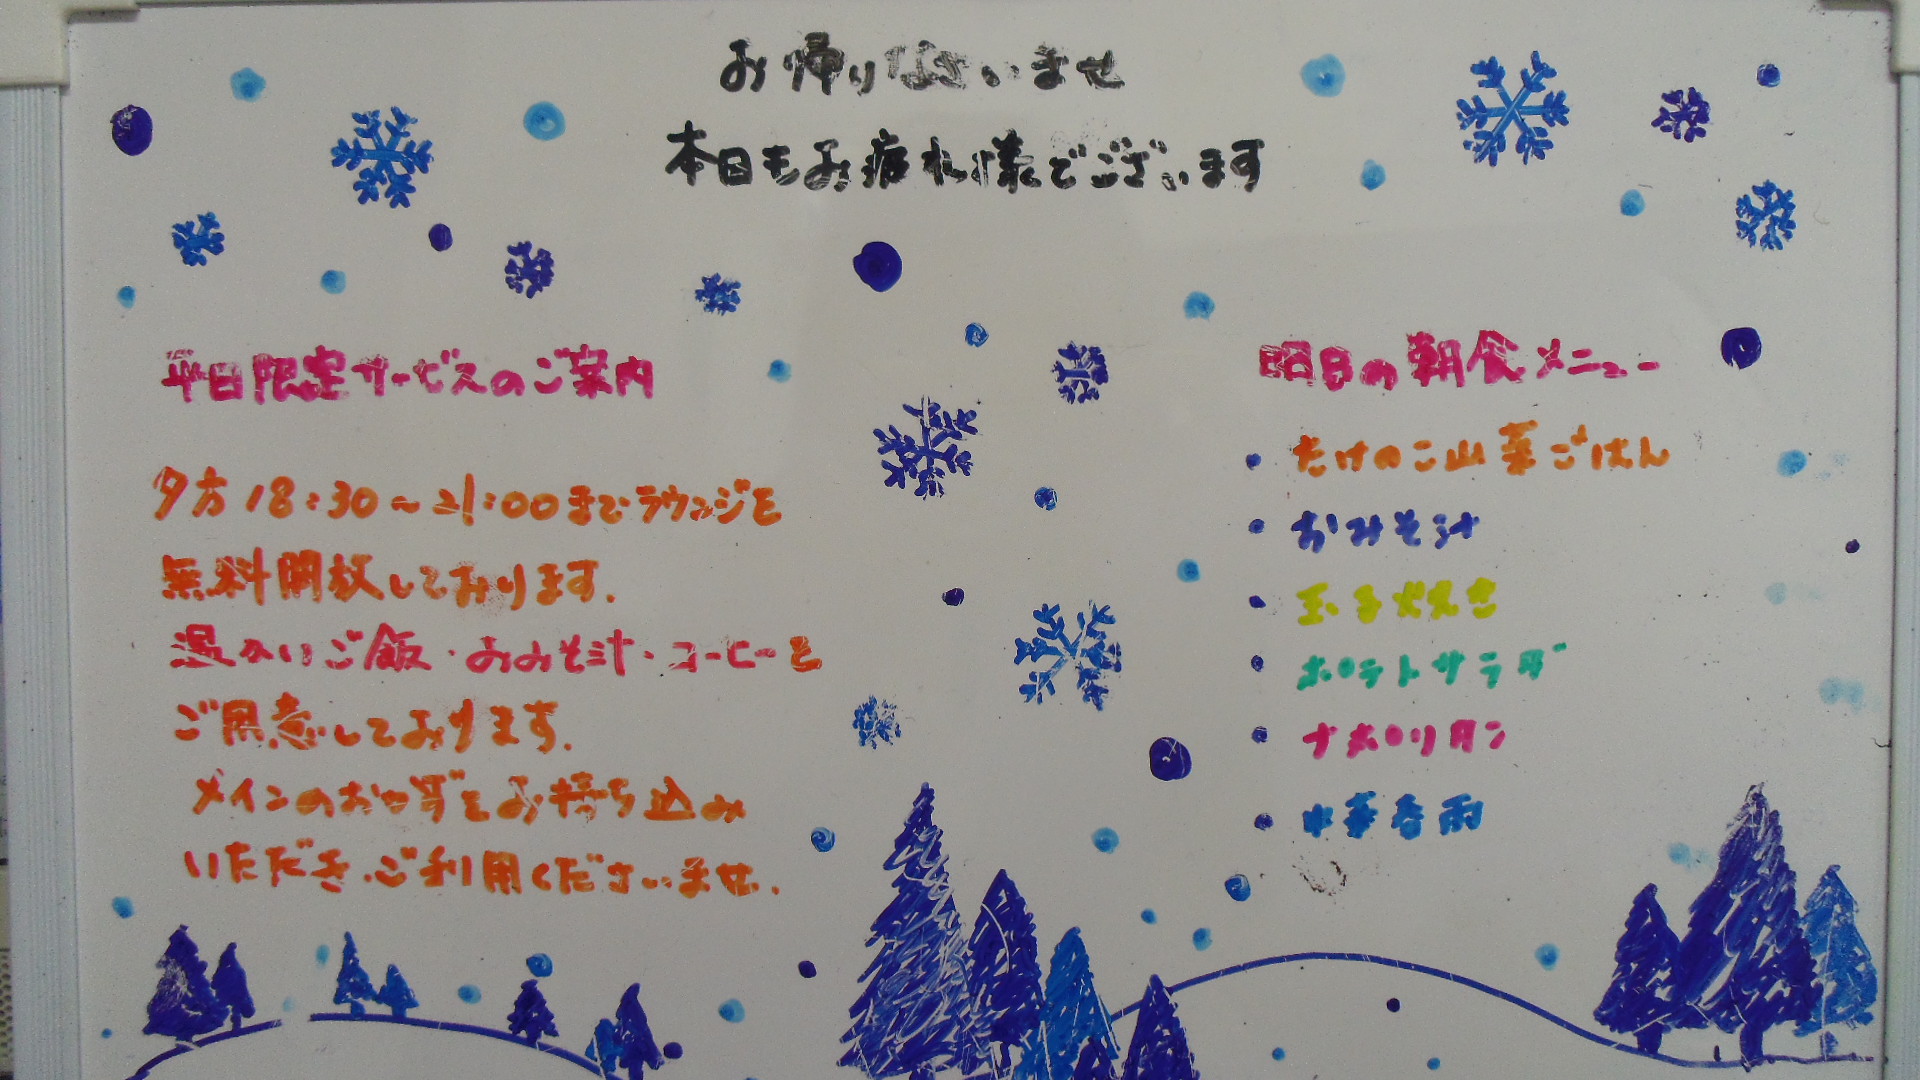 お帰りなさいませ
本日もお疲れ様でございます
平日限定サービスのご案内
夕方18:30～21:00までラウンジを
無料開放しております.
温かいご飯・おみそ汁・コーヒーを
ご用意しております.
メインのおかずをお持ち込み
いただき、ご利用くださいませ.
明日の朝食メニュー
・たけのこ山菜ごはん
・おみそ汁
・玉子焼き
・ポテトサラダ
・ナポリタン
・中華春雨